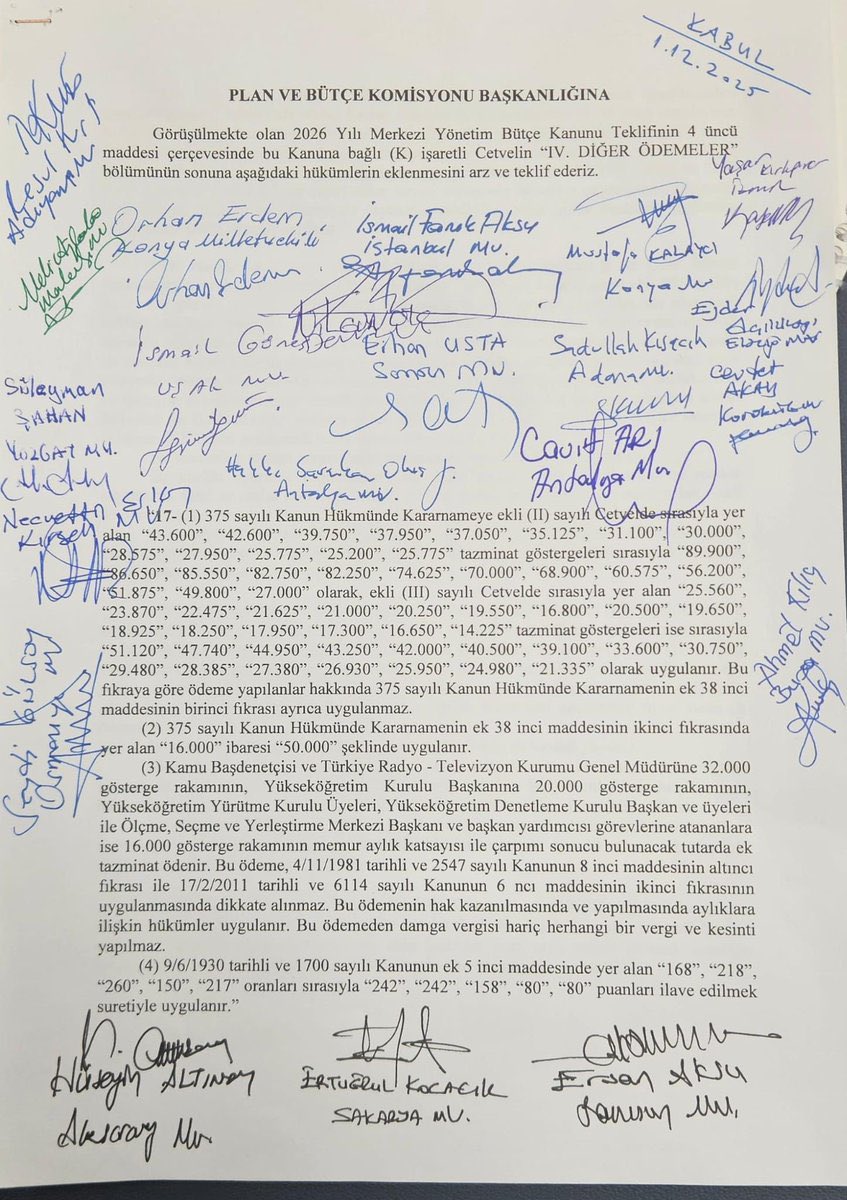 KABUL
1.12.2025
PLAN VE BÜTÇE KOMİSYONU BAŞKANLIĞINA
Görüşülmekte olan 2026 Yılı Merkezi Yönetim Bütçe Kanunu Teklifinin 4 üncü
maddesi çerçevesinde bu Kanuna bağlı (K) işaretli Cetvelin “IV. DİĞER ÖDEMELER”
bölümünün sonuna aşağıdaki hükümlerin eklenmesini arz ve teklif ederiz.
Adıyaman
Yaşar Kırkpınar
İzmir
Orhan Erdem
Konya Milletvekili
Orhan Erdem
İsmail Faruk Aksu
İstanbul Mv.
Mustafa KALAYCI
Konya Mv
İsmail Güneş
UŞAK MV.
Erhan USTA
Samsun MV.
Sadullah Kısacık
Adana Mv.
Ejder
Açıkkapı
Elazığ Mv
Cevdet
AKAY
Karabük
Süleyman
ŞAHAN
YOZGAT MV.
Cavit ARI
Antalya Mv
Antalya Mv.
Necmettin Erkan
Kırşehir Mv
“17- (1) 375 sayılı Kanun Hükmünde Kararnameye ekli (II) sayılı Cetvelde sırasıyla yer
alan “43.600”, “42.600”, “39.750”, “37.950”, “37.050”, “35.125”, “31.100”, “30.000”,
“28.575”, “27.950”, “25.775”, “25.200”, “25.775” tazminat göstergeleri sırasıyla “89.900”,
“86.650”, “85.550”, “82.750”, “82.250”, “74.625”, “70.000”, “68.900”, “60.575”, “56.200”,
“51.875”, “49.800”, “27.000” olarak, ekli (III) sayılı Cetvelde sırasıyla yer alan “25.560”,
“23.870”, “22.475”, “21.625”, “21.000”, “20.250”, “19.550”, “16.800”, “20.500”, “19.650”,
“18.925”, “18.250”, “17.950”, “17.300”, “16.650”, “14.225” tazminat göstergeleri ise sırasıyla
“51.120”, “47.740”, “44.950”, “43.250”, “42.000”, “40.500”, “39.100”, “33.600”, “30.750”,
“29.480”, “28.385”, “27.380”, “26.930”, “25.950”, “24.980”, “21.335” olarak uygulanır. Bu
fıkraya göre ödeme yapılanlar hakkında 375 sayılı Kanun Hükmünde Kararnamenin ek 38 inci
maddesinin birinci fıkrası ayrıca uygulanmaz.
(2) 375 sayılı Kanun Hükmünde Kararnamenin ek 38 inci maddesinin ikinci fıkrasında
yer alan “16.000” ibaresi “50.000” şeklinde uygulanır.
(3) Kamu Başdenetçisi ve Türkiye Radyo - Televizyon Kurumu Genel Müdürüne 32.000
gösterge rakamının, Yükseköğretim Kurulu Başkanına 20.000 gösterge rakamının,
Yükseköğretim Yürütme Kurulu Üyeleri, Yükseköğretim Denetleme Kurulu Başkan ve üyeleri
ile Ölçme, Seçme ve Yerleştirme Merkezi Başkanı ve başkan yardımcısı görevlerine atananlara
ise 16.000 gösterge rakamının memur aylık katsayısı ile çarpımı sonucu bulunacak tutarda ek
tazminat ödenir. Bu ödeme, 4/11/1981 tarihli ve 2547 sayılı Kanunun 8 inci maddesinin altıncı
fıkrası ile 17/2/2011 tarihli ve 6114 sayılı Kanunun 6 ncı maddesinin ikinci fıkrasının
uygulanmasında dikkate alınmaz. Bu ödemenin hak kazanılmasında ve yapılmasında aylıklara
ilişkin hükümler uygulanır. Bu ödemeden damga vergisi hariç herhangi bir vergi ve kesinti
yapılmaz.
(4) 9/6/1930 tarihli ve 1700 sayılı Kanunun ek 5 inci maddesinde yer alan “168”, “218”,
“260”, “150”, “217” oranları sırasıyla “242”, “242”, “158”, “80”, “80” puanları ilave edilmek
suretiyle uygulanır.”
Ahmet Kılıç
Bursa Mv.
Hüseyin ALTINSOY
Aksaray Mv.
ERTUĞRUL KOCACIK
SAKARYA MV.
Ersan AKSU
Samsun Mv.